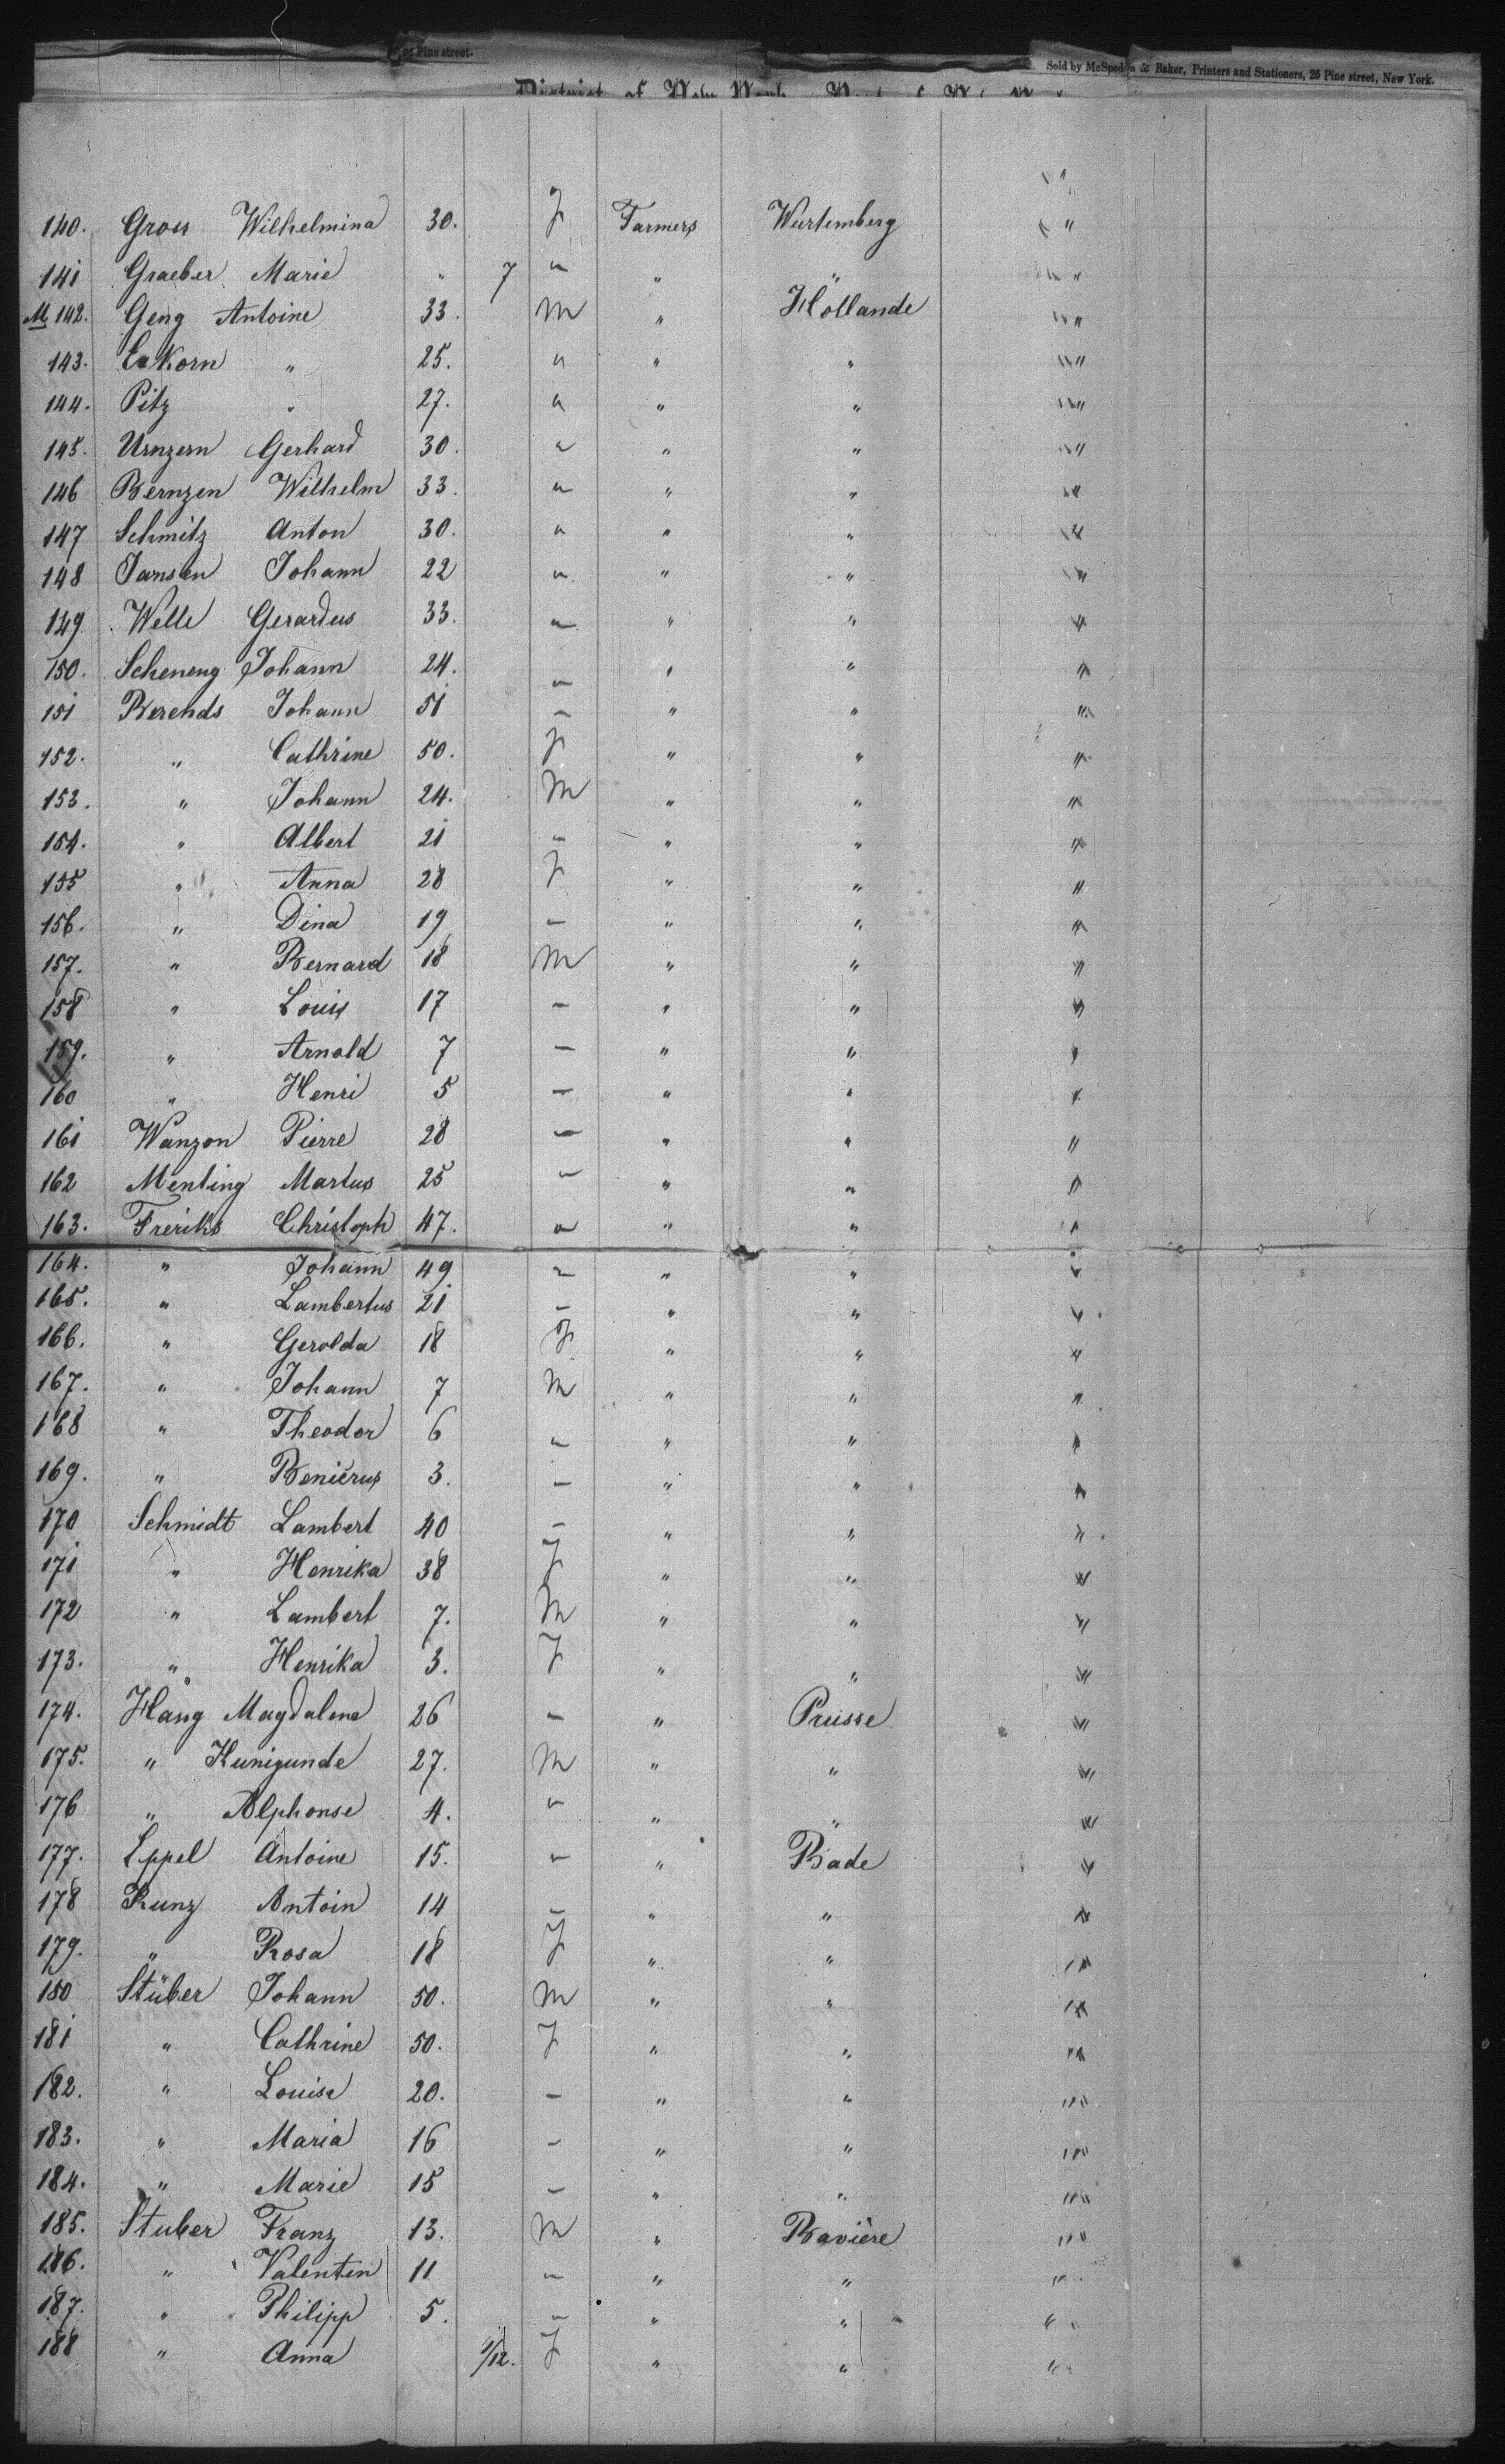 25 Pine street.
Sold by McSpedon & Baker, Printers and Stationers, 25 Pine street, New York.
District of New York
140. Gross Wilhelmina 30. F Farmers Wurtemberg "
141 Graeber Marie " 7 " " " "
M 142. Geng Antoine 33. M " Hollande "
143. Eckorn " 25. " " " "
144. Pitz " 27. " " " "
145. Urnzern Gerhard 30. " " " "
146 Bernzen Wilhelm 33. " " " "
147 Schmitz Anton 30. " " " "
148 Jansen Johann 22 " " " "
149 Welle Gerardus 33. " " " "
150. Scheneng Johann 24. " " " "
151 Berends Johann 51 " " " "
152. " Cathrine 50. F " " "
153. " Johann 24. M " " "
154. " Albert 21 " " " "
155 " Anna 28 F " " "
156. " Dina 19 " " " "
157. " Bernard 18 M " " "
158 " Louis 17 " " " "
159. " Arnold 7 " " " "
160 " Henri 5 " " " "
161 Wanzon Pierre 28 " " " "
162 Menting Martus 25 " " " "
163. Freriks Christoph 47. " " " "
164. " Johann 49 " " " "
165. " Lambertus 21 " " " "
166. " Gerolda 18 F " " "
167. " Johann 7 M " " "
168 " Theodor 6 " " " "
169. " Benierus 3. " " " "
170 Schmidt Lambert 40 " " " "
171 " Henrika 38 F " " "
172 " Lambert 7. M " " "
173. " Henrika 3. F " " "
174. Hang Magdalena 26 " " Prusse "
175. " Kunigunde 27. M " " "
176 " Alphonse 4. " " " "
177. Eppel Antoine 15. " " Bade "
178 Kunz Antoin 14 " " " "
179. " Rosa 18 F " " "
180 Stüber Johann 50. M " " "
181 " Cathrine 50. F " " "
182. " Louise 20. " " " "
183. " Maria 16 " " " "
184. " Marie 15 " " " "
185. Stuber Franz 13. M " Bavière "
186. " Valentin 11 " " " "
187. " Philipp 5. " " " "
188 " Anna 1/12. F " " "